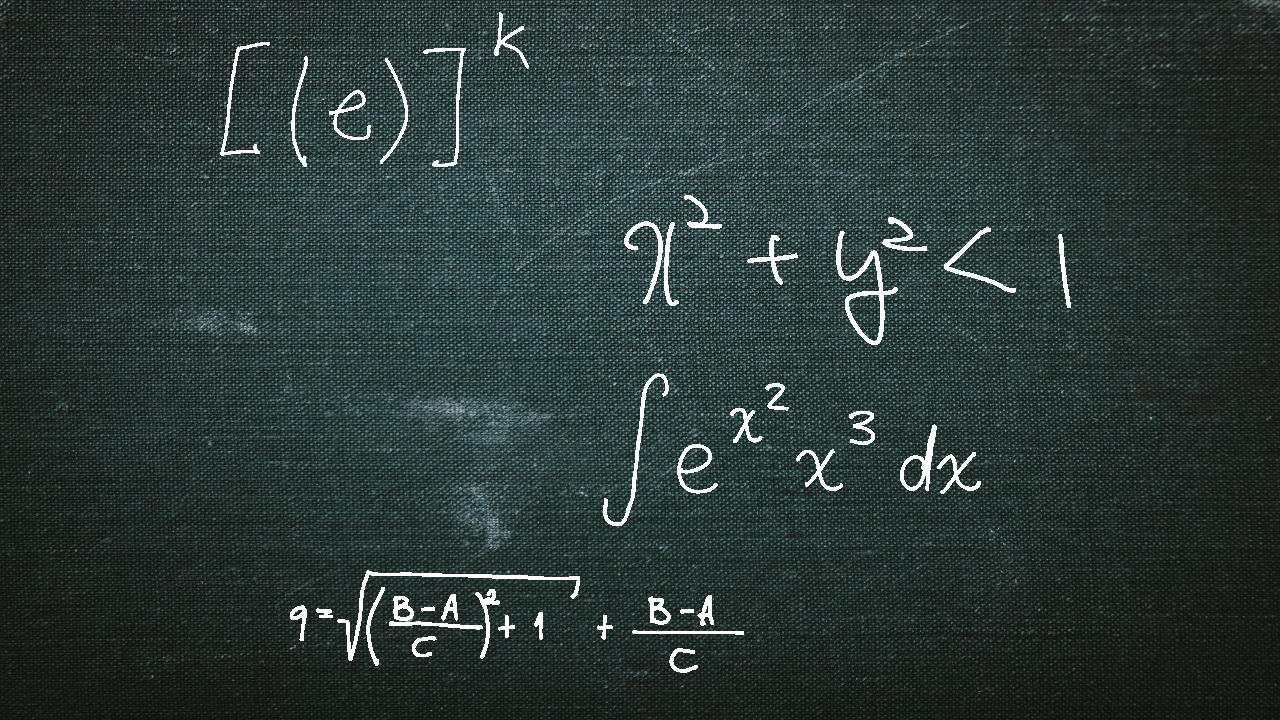 [(e)]^k
x² + y² < 1
∫ e^{x²} x³ dx
q = √((B-A)/C)² + 1) + (B-A)/C